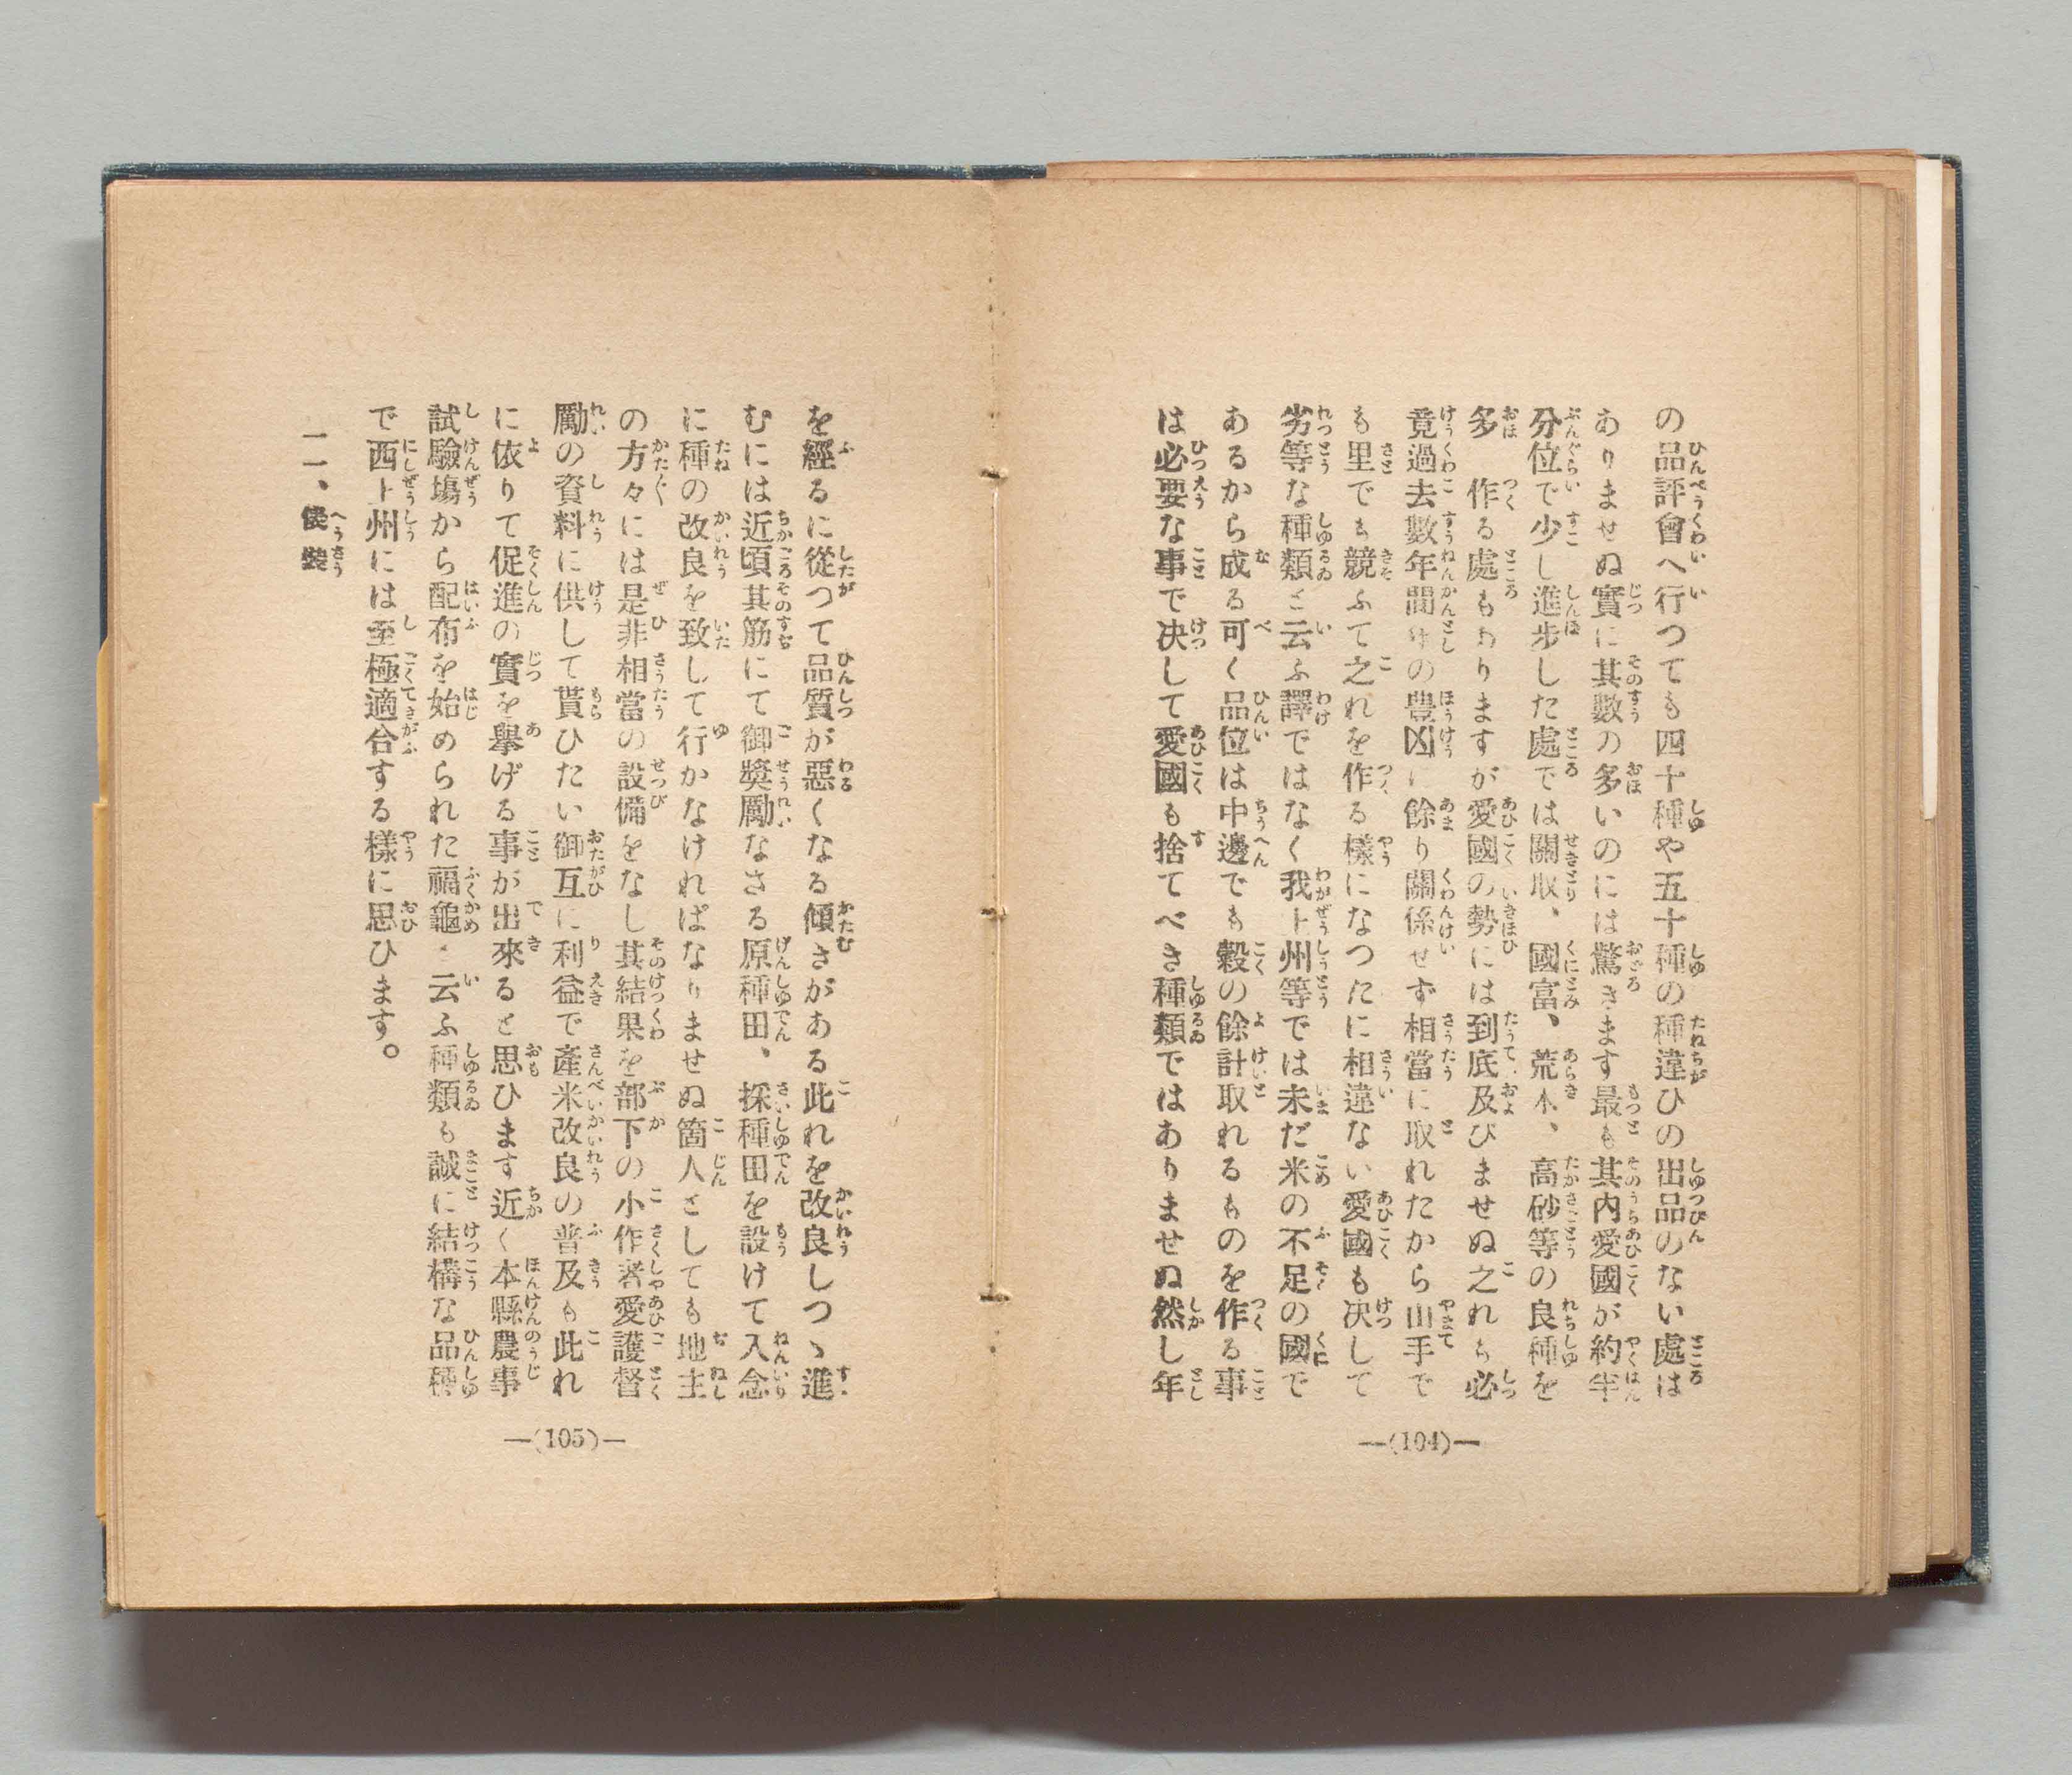 の品評會へ行つても四十種や五十種の種違ひの出品のない處は
ありませぬ實に其數の多いのには驚きます最も其内愛國が約半
分位で少し進歩した處では關取、國富、荒木、高砂等の良種を
多 作る處もありますが愛國の勢には到底及びませぬ之れも必
竟過去數年間年の豊凶に餘り關係せず相當に取れたから山手で
も里でも競ふて之れを作る樣になつたに相違ない愛國も决して
劣等な種類と云ふ譯ではなく我上州等では未だ米の不足の國で
あるから成る可く品位は中邊でも穀の餘計取れるものを作る事
は必要な事で决して愛國も捨てべき種類ではありませぬ然し年
—(104)—
を經るに從つて品質が惡くなる傾きがある此れを改良しつゝ進
むには近頃其筋にて御奬勵なさる原種田、採種田を設けて入念
に種の改良を致して行かなければなりませぬ箇人としても地主
の方々には是非相當の設備をなし其結果を部下の小作者愛護督
勵の資料に供して貰ひたい御互に利益で產米改良の普及も此れ
に依りて促進の實を擧げる事が出來ると思ひます近く本縣農事
試驗塲から配布を始められた福龜と云ふ種類も誠に結構な品種
で西上州には至極適合する樣に思ひます。
二、俵裝
—(105)—